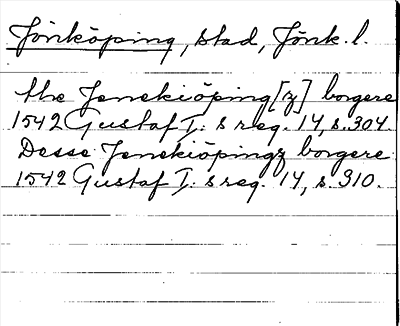 Jönköping, stad, Jönk. l.
the Jenekiöping[z] borgere
1542 Gustaf I:s reg. 14, s. 304
Desse Jenekiöpingz borgere
1542 Gustaf I:s reg. 14, s. 310.